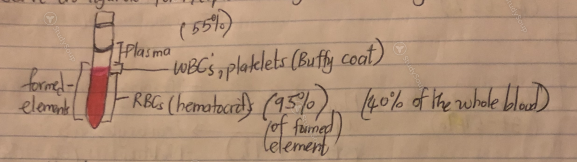 (55%)
Plasma
WBC's, platelets (Buffy coat)
formed
element
RBCs (hematocrit) (95%) (40% of the whole blood)
(of formed)
element